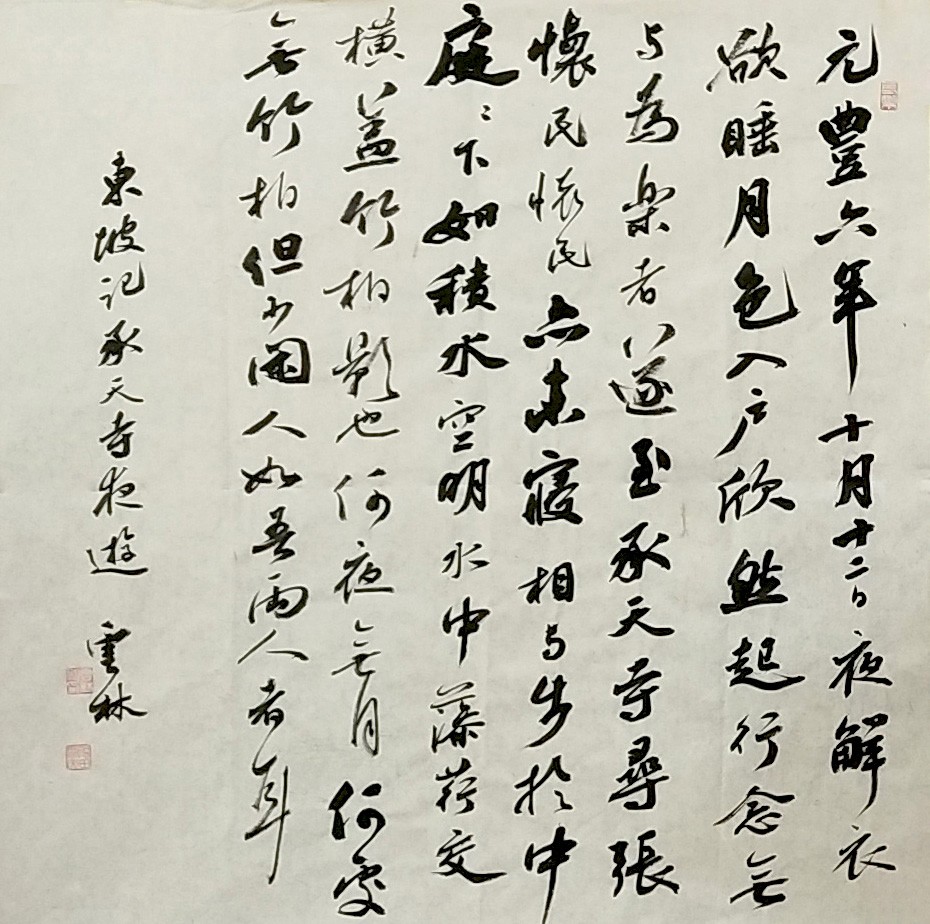 元豐六年十月十二日夜解衣
欲睡月色入户欣然起行念無
与為樂者遂至承天寺尋張
懷民懷民亦未寢相与步於中
庭〻下如積水空明水中藻荇交
橫蓋竹柏影也何夜無月何處
無竹柏但少閑人如吾兩人者耳
東坡記承天寺夜遊 雲林